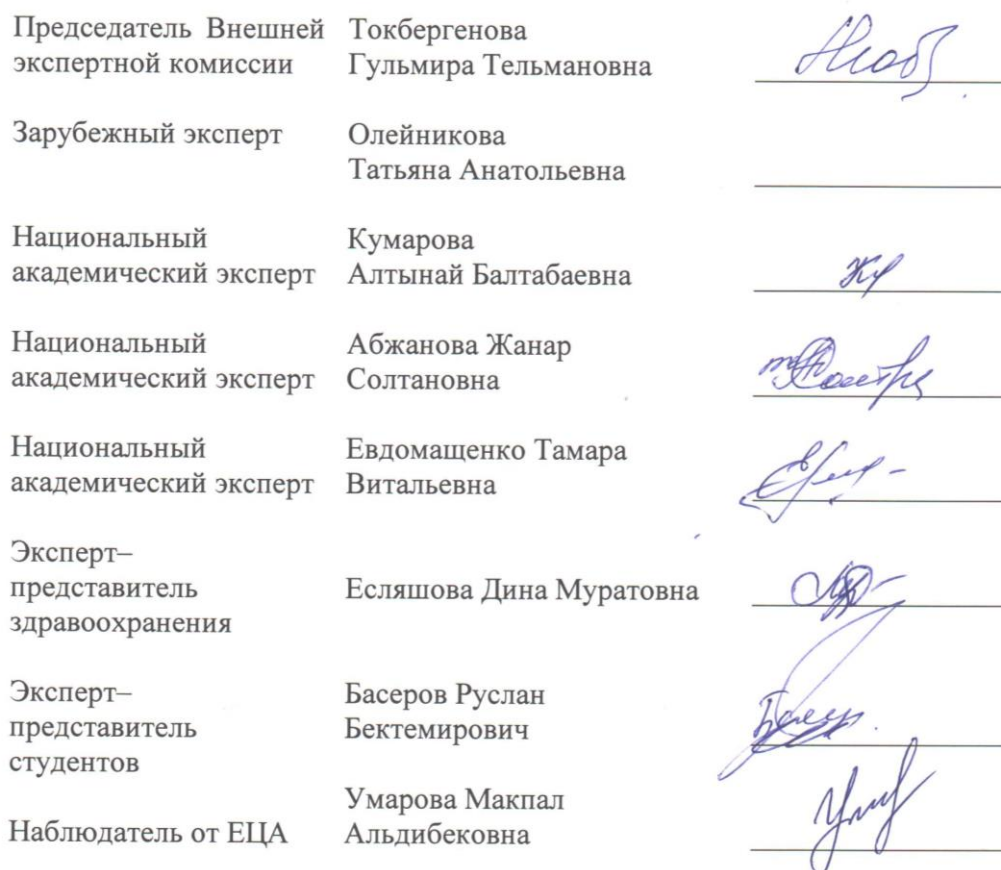 Председатель Внешней экспертной комиссии
Токбергенова Гульмира Тельмановна
Зарубежный эксперт
Олейникова
Татьяна Анатольевна
Национальный
академический эксперт
Кумарова
Алтынай Балтабаевна
Национальный
академический эксперт
Абжанова Жанар
Солтановна
Национальный
академический эксперт
Евдомащенко Тамара
Витальевна
Эксперт–
представитель
здравоохранения
Есляшова Дина Муратовна
Эксперт–
представитель
студентов
Басеров Руслан
Бектемирович
Наблюдатель от ЕЦА
Умарова Макпал
Альдибековна